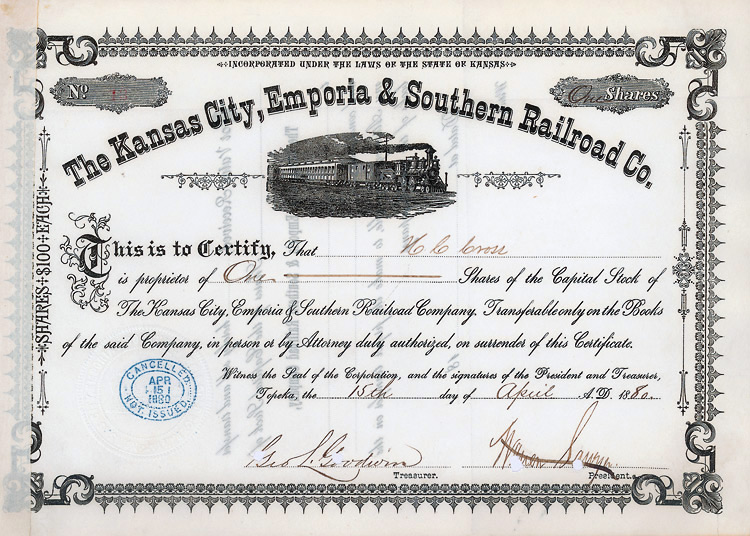 INCORPORATED UNDER THE LAWS OF THE STATE OF KANSAS
No
One Shares
The Kansas City, Emporia & Southern Railroad Co.
SHARES $100 EACH
This is to Certify, That H C Cross
is proprietor of One Shares of the Capital Stock of
The Kansas City, Emporia & Southern Railroad Company. Transferable only on the Books
of the said Company, in person or by Attorney duly authorized, on surrender of this Certificate.
Witness the Seal of the Corporation, and the signatures of the President and Treasurer,
Topeka, the 15th day of April A.D. 1880.
CANCELLED
APR
15
1880
NOT ISSUED
Geo L Goodwin
Treasurer.
President.